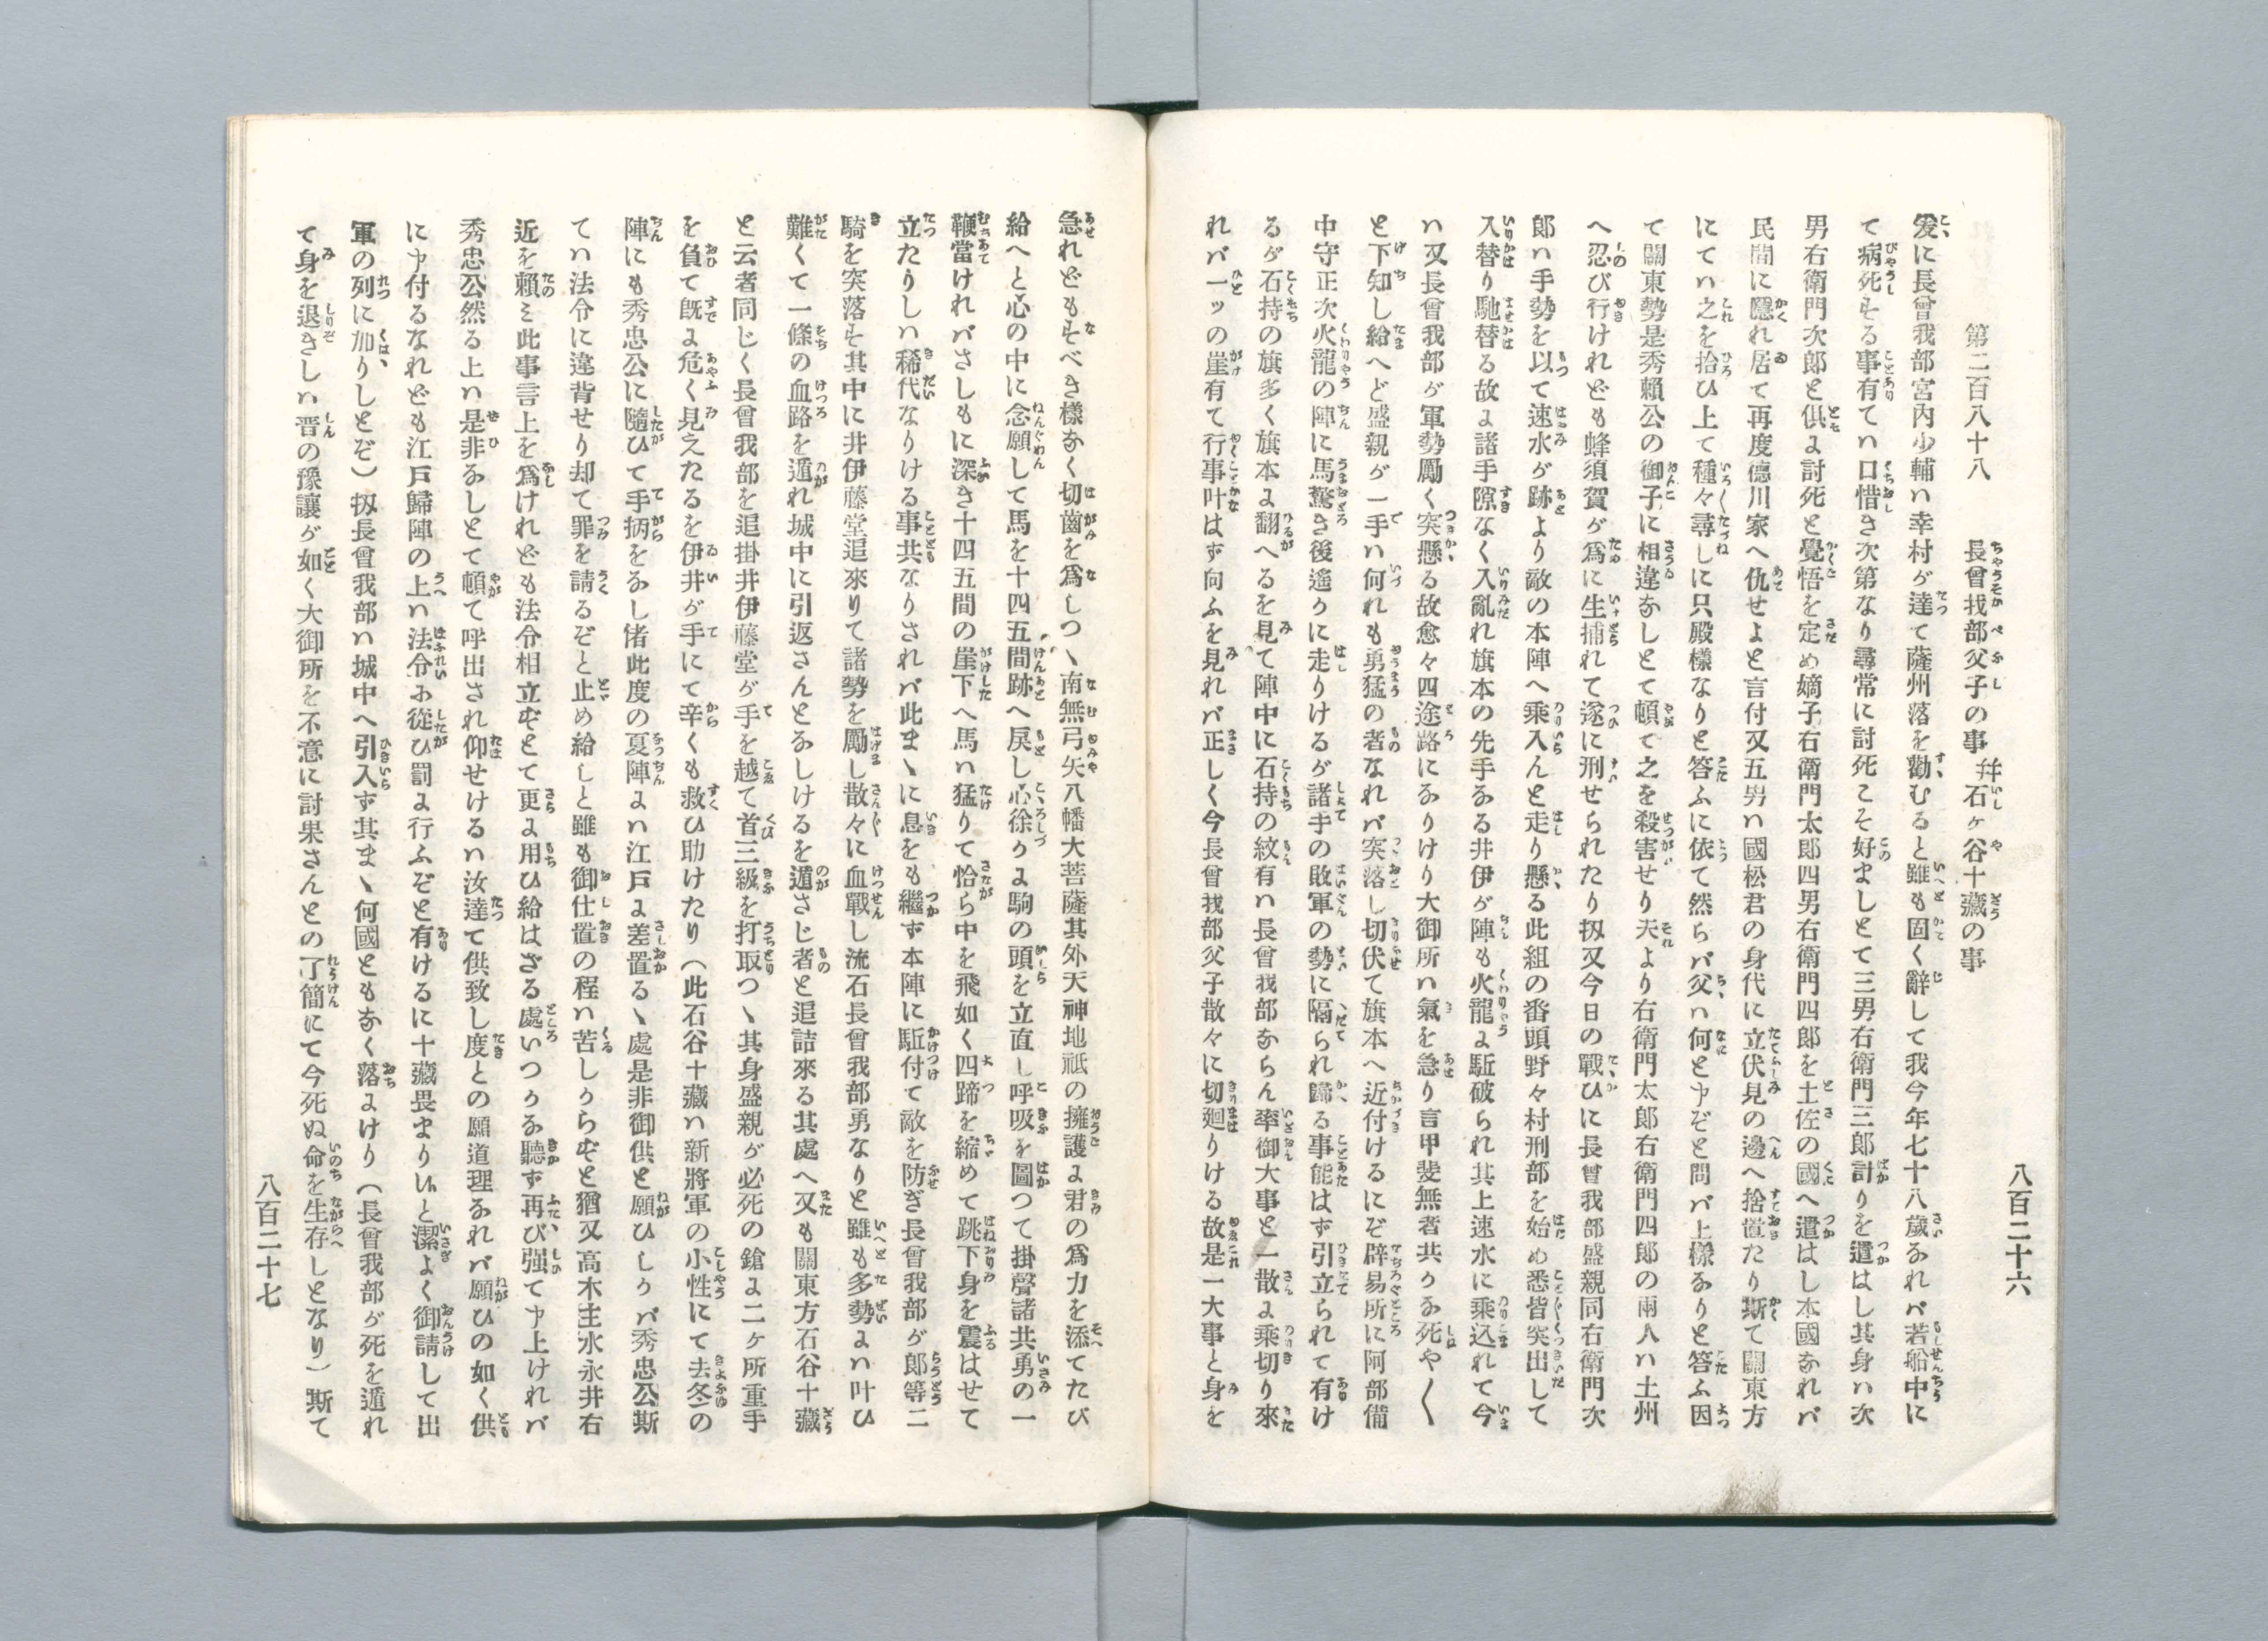 八百二十六
第二百八十八　長曾我部父子の事 幷石ヶ谷十藏の事
爰に長曾我部宮内少輔ハ幸村が達て薩州落を勸むると雖も固く辭して我今年七十八歲なれバ若船中に
て病死する事有てハ口惜き次第なり尋常に討死こそ好ましとて三男右衛門三郎計りを遣はし其身ハ次
男右衛門次郎と供に討死と覺悟を定め嫡子右衛門太郎四男右衛門四郎を土佐の國へ遣はし本國なれバ
民間に隱れ居て再度德川家へ仇せよと言付又五男ハ國松君の身代に立伏見の邊へ捨置たり斯て關東方
にてハ之を拾ひ上て種々尋しに只殿樣なりと答ふに依て然らバ父ハ何と申ぞと問バ上樣なりと答ふ因
て關東勢是秀賴公の御子に相違なしとて頓て之を殺害せり夫より右衛門太郎右衛門四郎の兩人ハ土州
へ忍び行けれども蜂須賀が爲に生捕れて遂に刑せられたり扨又今日の戰ひに長曾我部盛親同右衛門次
郎ハ手勢を以て速水が跡より敵の本陣へ乘入んと走り懸る此組の番頭野々村刑部を始め悉皆突出して
入替り馳替る故に諸手隙なく入亂れ旗本の先手なる井伊が陣も火龍に駈破られ其上速水に乘込れて今
ハ又長曾我部が軍勢勵く突懸る故愈々四途路になりけり大御所ハ氣を急り言甲斐無者共かな死や〳〵
と下知し給へど盛親が一手ハ何れも勇猛の者なれバ突落し切伏て旗本へ近付けるにぞ辟易所に阿部備
中守正次火龍の陣に馬驚き後遙かに走りけるが諸手の敗軍の勢に隔られ歸る事能はず引立られて有け
るが石持の旗多く旗本に翻へるを見て陣中に石持の紋有ハ長曾我部ならん率御大事と一散に乘切り來
れバ一ッの崖有て行事叶はず向ふを見れバ正しく今長曾我部父子散々に切廻りける故是一大事と身を
急れどもすべき樣なく切齒を爲しつヽ南無弓矢八幡大菩薩其外天神地祇の擁護に君の爲力を添てたび
給へと心の中に念願して馬を十四五間跡へ戾し心徐かに駒の頭を立直し呼吸を圖つて掛聲諸共勇の一
鞭當けれバさしもに深き十四五間の崖下へ馬ハ猛りて恰ら中を飛如く四蹄を縮めて跳下身を震はせて
立たりしハ稀代なりける事共なりされバ此まヽに息をも繼ず本陣に駈付て敵を防ぎ長曾我部が郎等二
騎を突落す其中に井伊藤堂追來りて諸勢を勵し散々に血戰し流石長曾我部勇なりと雖も多勢にハ叶ひ
難くて一條の血路を遁れ城中に引返さんとなしけるを遁さじ者と追詰來る其處へ又も關東方石谷十藏
と云者同じく長曾我部を追掛井伊藤堂が手を越て首三級を打取つヽ其身盛親が必死の鎗に二ヶ所重手
を負て旣に危く見えたるを伊井が手にて辛くも救ひ助けたり（此石谷十藏ハ新將軍の小性にて去冬の
陣にも秀忠公に隨ひて手柄をなし偖此度の夏陣にハ江戸に差置るヽ處是非御供と願ひしかバ秀忠公斯
てハ法令に違背せり却て罪を請るぞと止め給しと雖も御仕置の程ハ苦しからずと猶又高木主水永井右
近を賴ミ此事言上を爲けれども法令相立ずとて更に用ひ給はざる處いつかな聽ず再び强て申上けれバ
秀忠公然る上ハ是非なしとて頓て呼出され仰せけるハ汝達て供致し度との願道理なれバ願ひの如く供
に申付るなれども江戸歸陣の上ハ法令に從ひ罰に行ふぞと有けるに十藏畏まりいと潔よく御請して出
軍の列に加りしとぞ）扨長曾我部ハ城中へ引入ず其まヽ何國ともなく落にけり（長曾我部が死を遁れ
て身を退きしハ晋の豫讓が如く大御所を不意に討果さんとの了簡にて今死ぬ命を生存しとなり）斯て
八百二十七